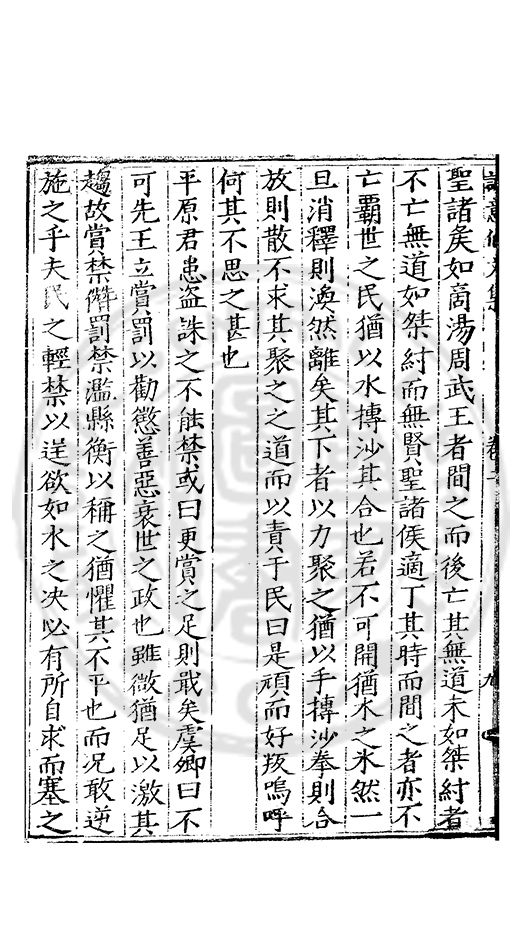 聖諸矦如啇湯周武王者間之而後亡其無道未如桀紂者
不亡無道如桀紂而無賢聖諸侯適丁其時而間之者亦不
亡霸世之民猶以水摶沙其合也若不可開猶木之氷然一
旦消釋則渙然離矣其下者以力聚之猶以手摶沙拳則合
放則散不求其聚之之道而以責于民曰是頑而好叛嗚呼
何其不思之甚也
平原君患盗誅之不能禁或曰更賞之足則戢矣虞卿曰不
可先王立賞罰以勸懲善惡衰世之政也雖微猶足以激其
趨故賞禁僭罰禁濫縣衡以稱之猶懼其不平也而况敢逆
施之乎夫民之輕禁以逞欲如水之决必有所自求而塞之